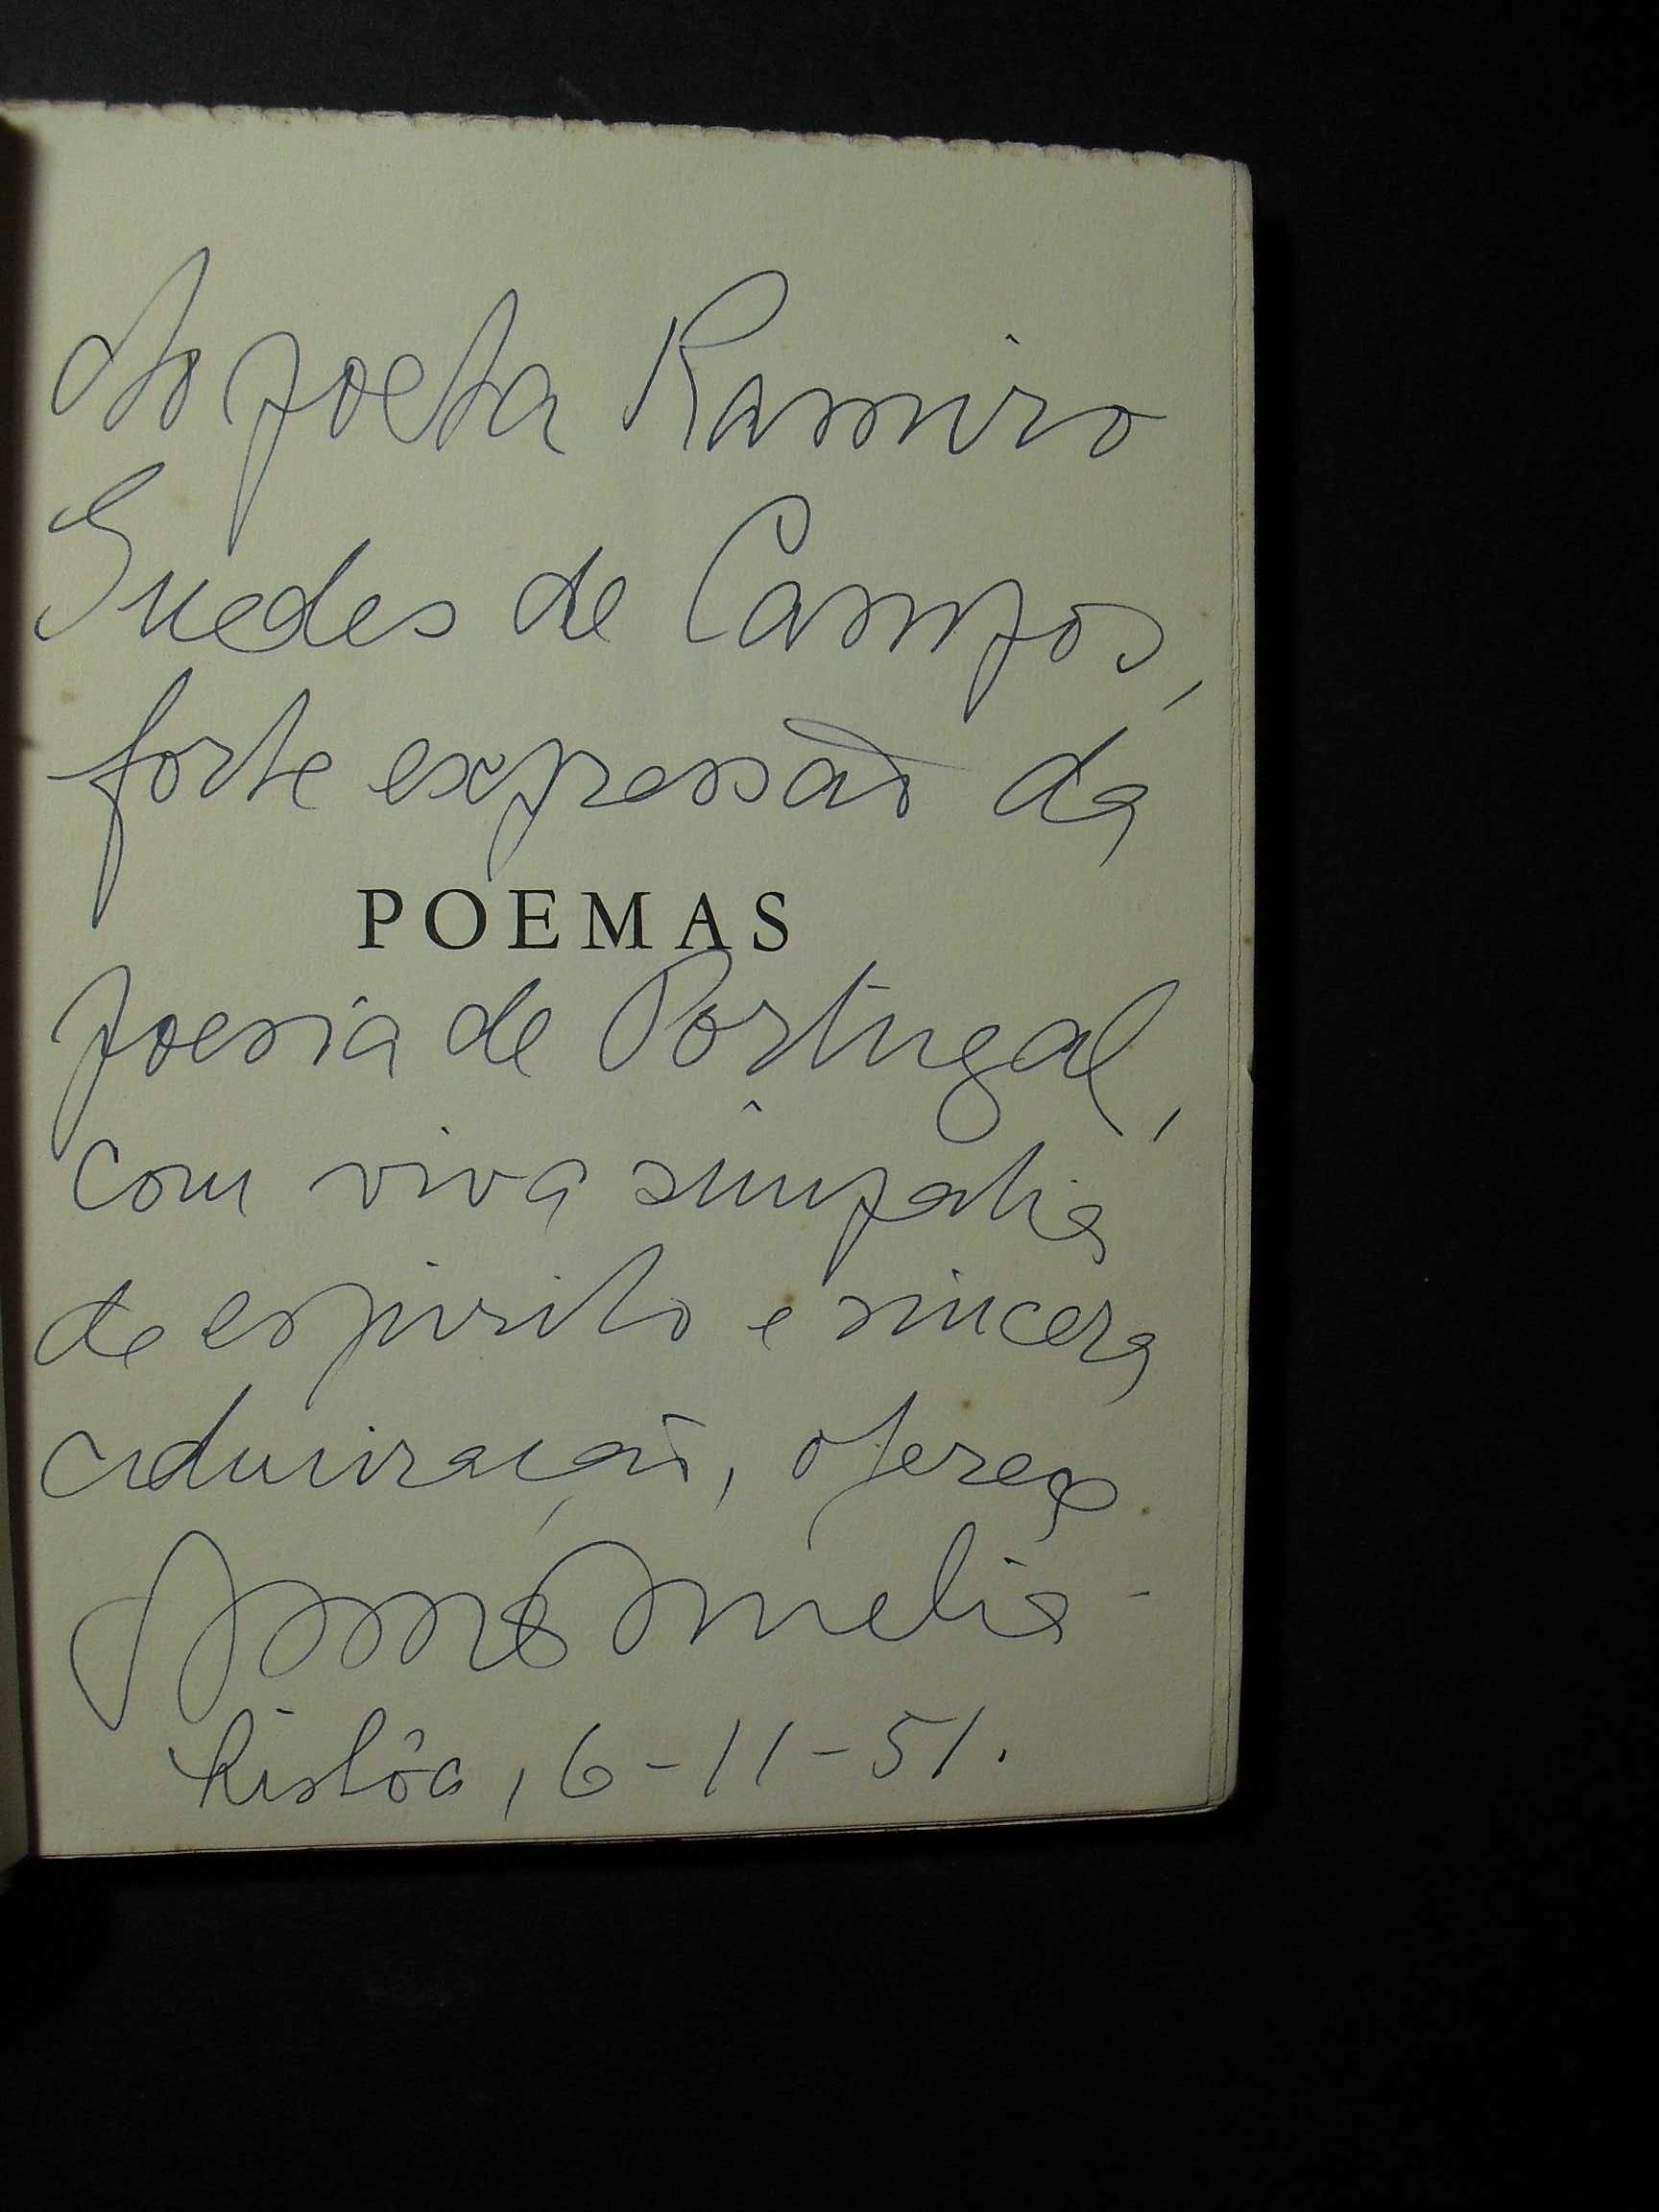 Ao poeta Ramiro
Guedes de Campos,
forte expressão da
POEMAS
poesia de Portugal,
com viva simpatia
de espirito e sincera
admiração, ofereço
Anna Amelia
Lisbôa, 6-11-51.